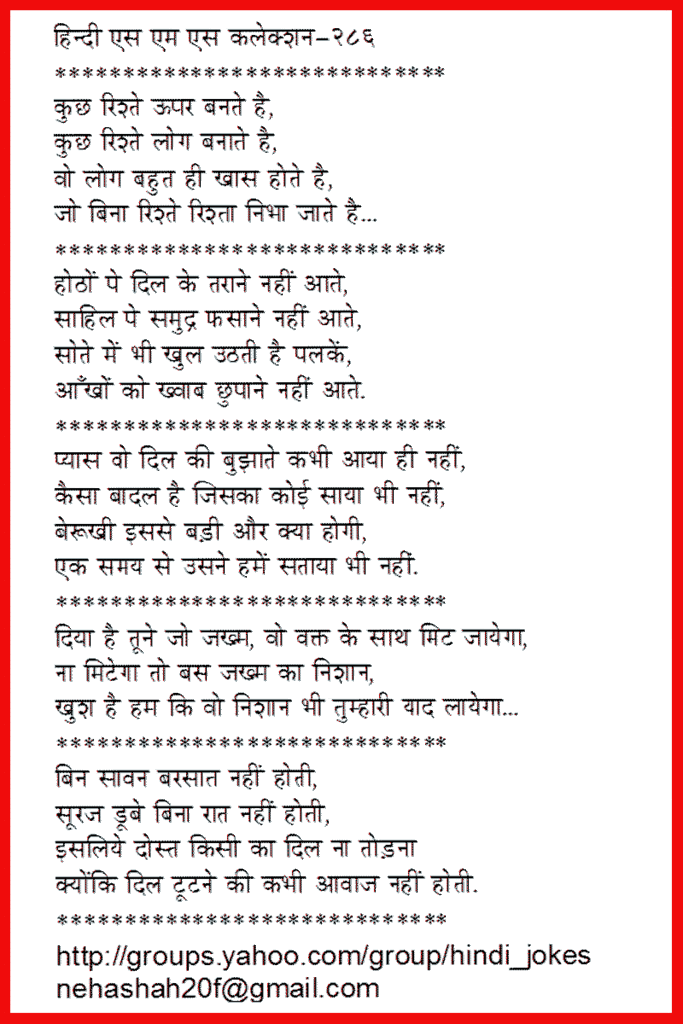 हिन्दी एस एम एस कलेक्शन-२८६
*****************************
कुछ रिश्ते ऊपर बनते है,
कुछ रिश्ते लोग बनाते है,
वो लोग बहुत ही खास होते है,
जो बिना रिश्ते रिश्ता निभा जाते है...
*****************************
होठों पे दिल के तराने नहीं आते,
साहिल पे समुद्र फसाने नहीं आते,
सोते में भी खुल उठती है पलकें,
आँखों को ख्वाब छुपाने नहीं आते.
*****************************
प्यास वो दिल की बुझाते कभी आया ही नहीं,
कैसा बादल है जिसका कोई साया भी नहीं,
बेरूखी इससे बड़ी और क्या होगी,
एक समय से उसने हमें सताया भी नहीं.
*****************************
दिया है तूने जो जख्म, वो वक्त के साथ मिट जायेगा,
ना मिटेगा तो बस जख्म का निशान,
खुश है हम कि वो निशान भी तुम्हारी याद लायेगा...
*****************************
बिन सावन बरसात नहीं होती,
सूरज डूबे बिना रात नहीं होती,
इसलिये दोस्त किसी का दिल ना तोड़ना
क्योंकि दिल टूटने की कभी आवाज नहीं होती.
*****************************
http://groups.yahoo.com/group/hindi_jokes
nehashah20f@gmail.com